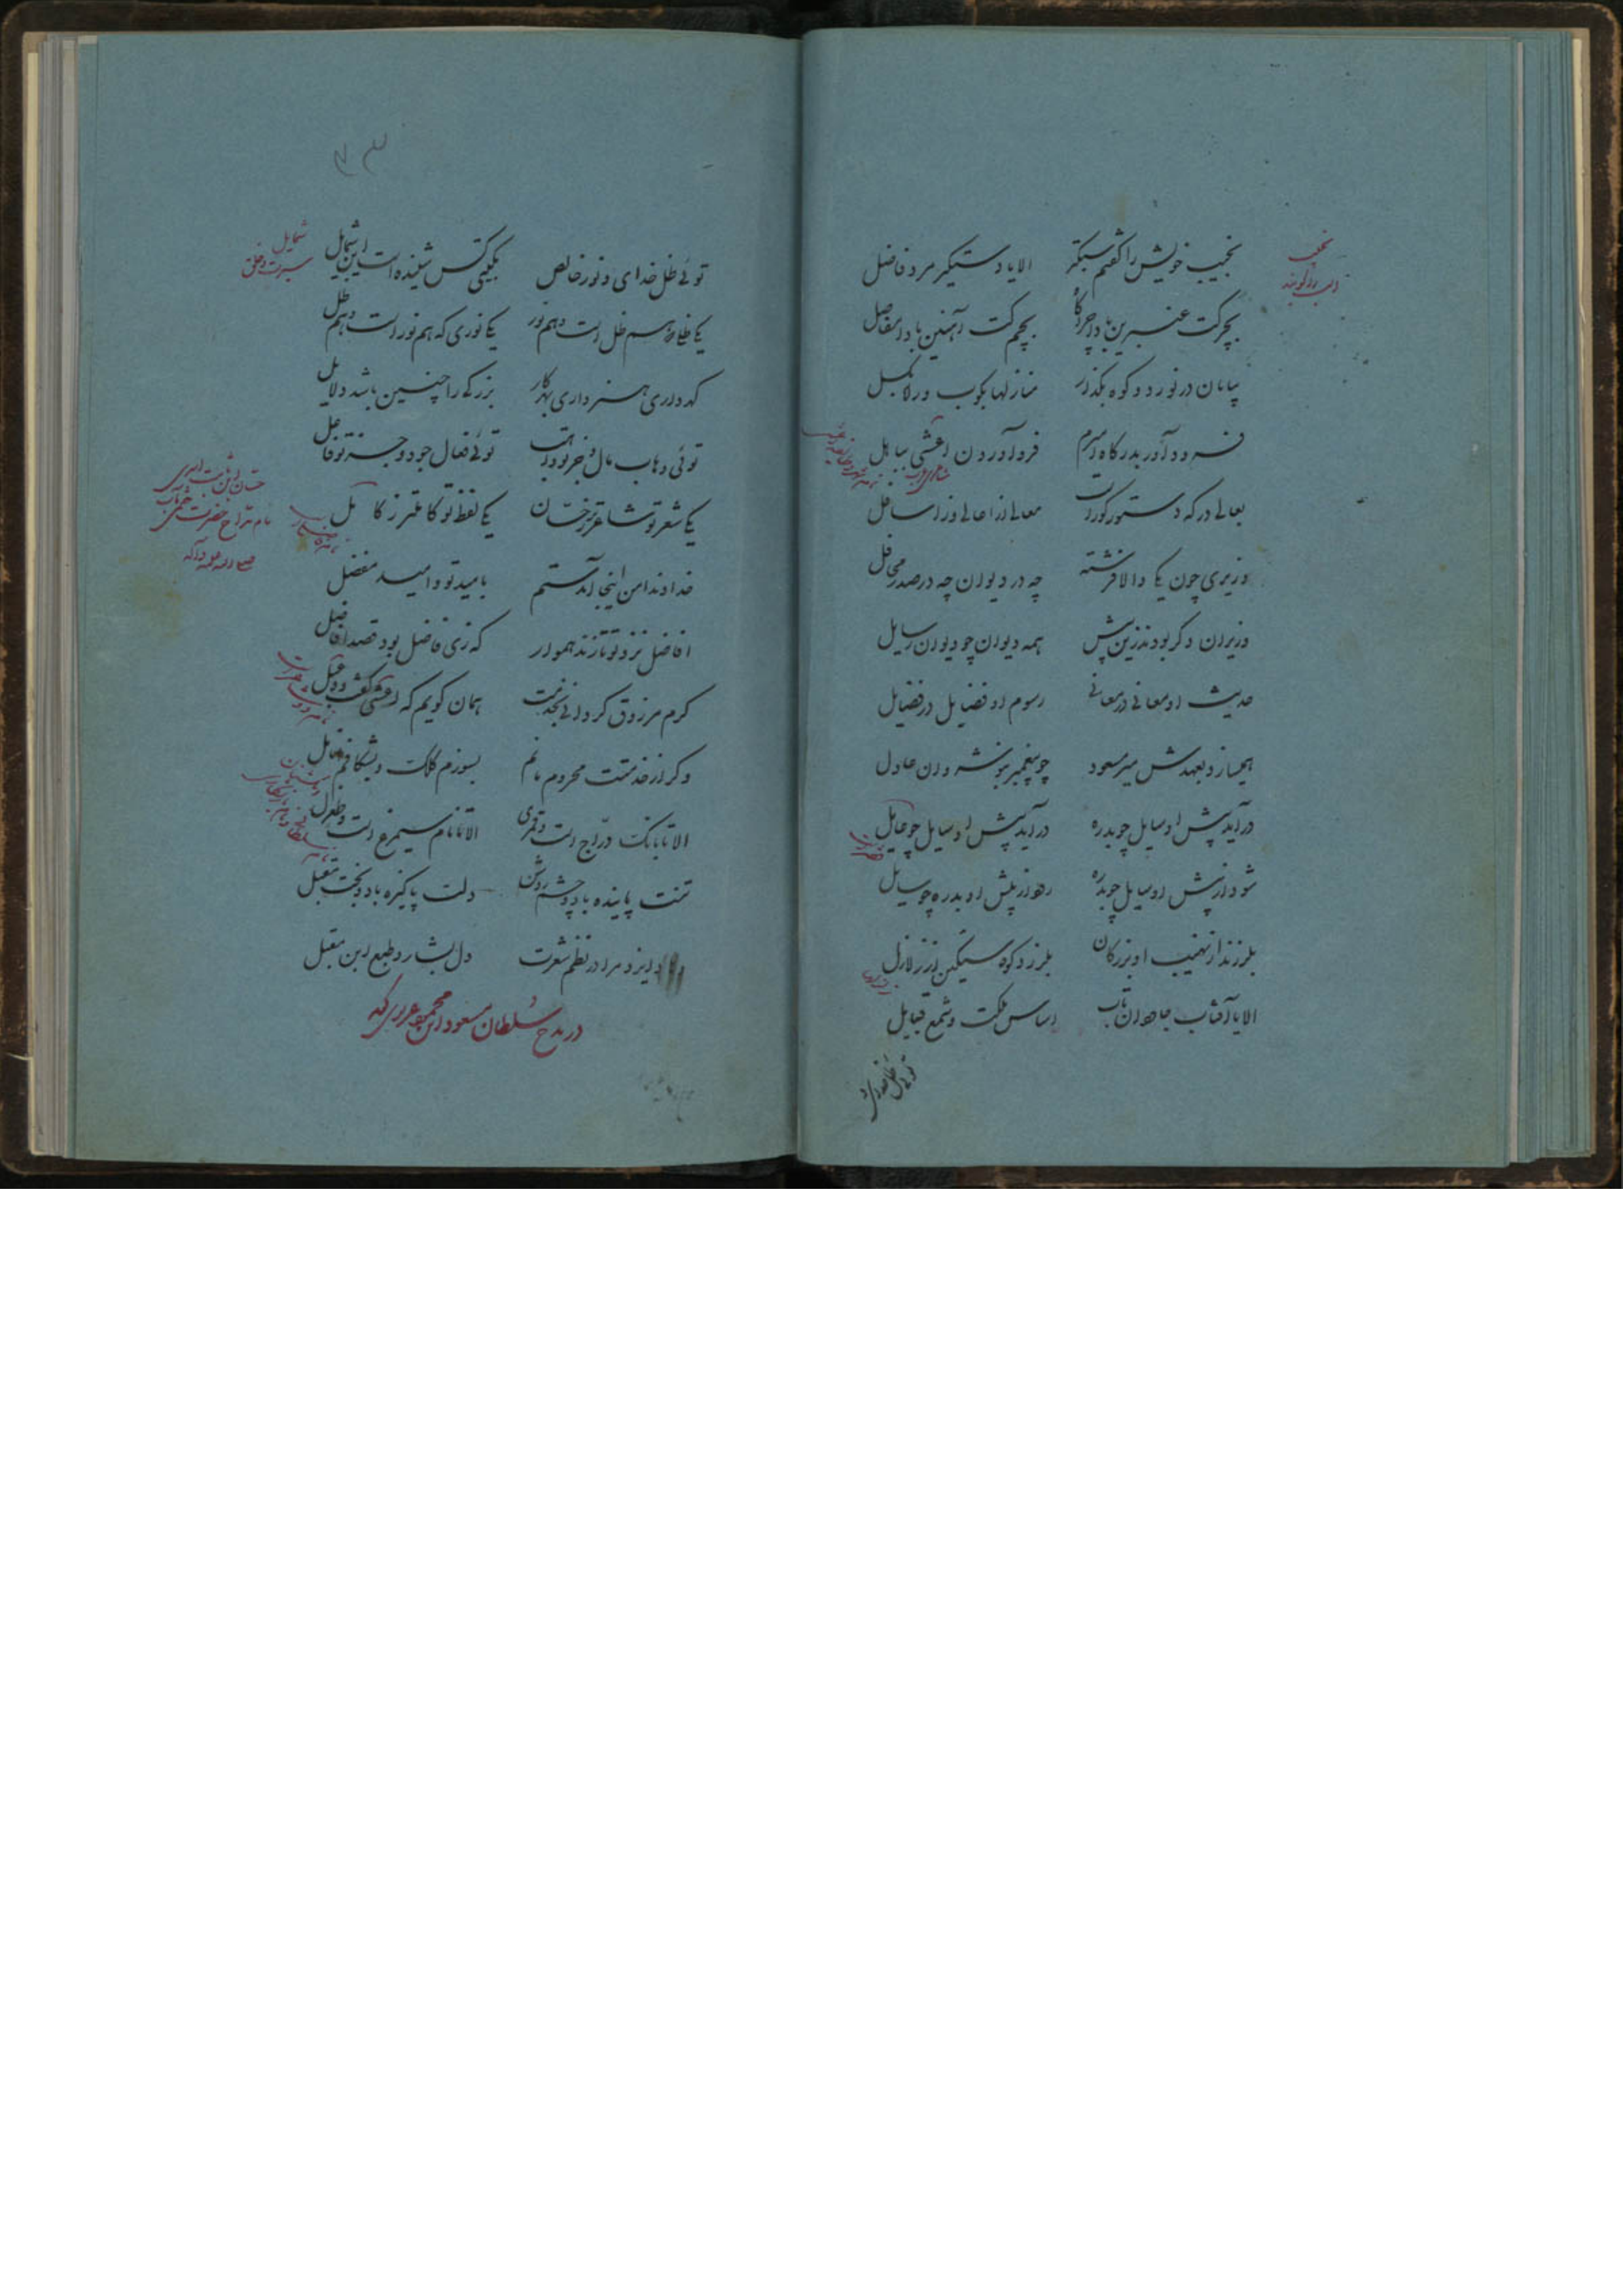 نجیب خویش را گفتم سبکتر الا یا دستگیر مرد فاضل
بچرکت عنبرین بادا چراگاه بچم کت آهنین بادا مفاصل
بیابان در نورد و کوه بگذار منازلها بکوب و راه بگسل
فرود آور بدرگاه وزیرم فرود آوردن اعشی بباهل
بعالی درگه دستور کوراست معالی از اعالی وز اسافل
وزیری چون یکی والا فرشته چه در دیوان چه در صدر محافل
وزیران دگر بودند زین پیش همه دیوان چو دیوان رسایل
حدیث او معانی در معانی رسوم او فضایل در فضایل
همیسازد بعهدش میر مسعود چو پیغمبر بنوشروان عادل
درآید پیش او سایل چو بدره درآید پیش او سایل چو عایل
شود از پیش او سایل چو بدره رود از پیش او بدره چو سایل
بلرزند از نهیب او بزرگان بلرزد کوه سنگین از زلازل
الا یا آفتاب جاودان تاب اساس ملکت و شمع قبایل
توئی ظل خدای و
توئی ظل خدای و نور خالص بگیتی کس شنیده است این شمایل
یکی ظلی که هم ظل است و هم نور یکی نوری که هم نور است و هم ظل
که داری هنر داری بهر کار بزرگی را چنین باشد دلایل
توئی وهاب مال و جز تو واهب توئی فعال جود و جز تو فاعل
یکی شعر تو شاعرتر ز حسان یکی لفظ تو کاملتر ز کامل
خداوندا من اینجا آمدستم بامید تو و امید مفضل
افاضل نزد تو تازند هموار که زی فاضل بود قصد افاضل
کرم مرزوق گردانی بخدمت همان گویم که اعشی گفت و دعبل
وگر از خدمتت محروم مانم بسوزم کلک و بشکافم انامل
الا تا بانگ دراج است و قمری الا تا نام سیمرغ است و طغرل
تنت پاینده باد و چشم روشن دلت پاکیزه باد و بخت مقبل
دهاد ایزد مرا در نظم شعرت دل بشار و طبع ابن مقبل
در مدح سلطان مسعود ابن محمود غزنوی گوید
شمایل
سیرت و خلق